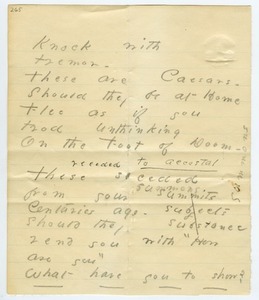 Knock with
tremor -
These are Caesars -
Should they be at Home
Flee as if you
trod unthinking
On the Foot of Doom -
receded to accostal
These seceded
summons
from your summits
Centuries ago - subjects
Should they substance
rend you with "How
are you"
What have you to show?